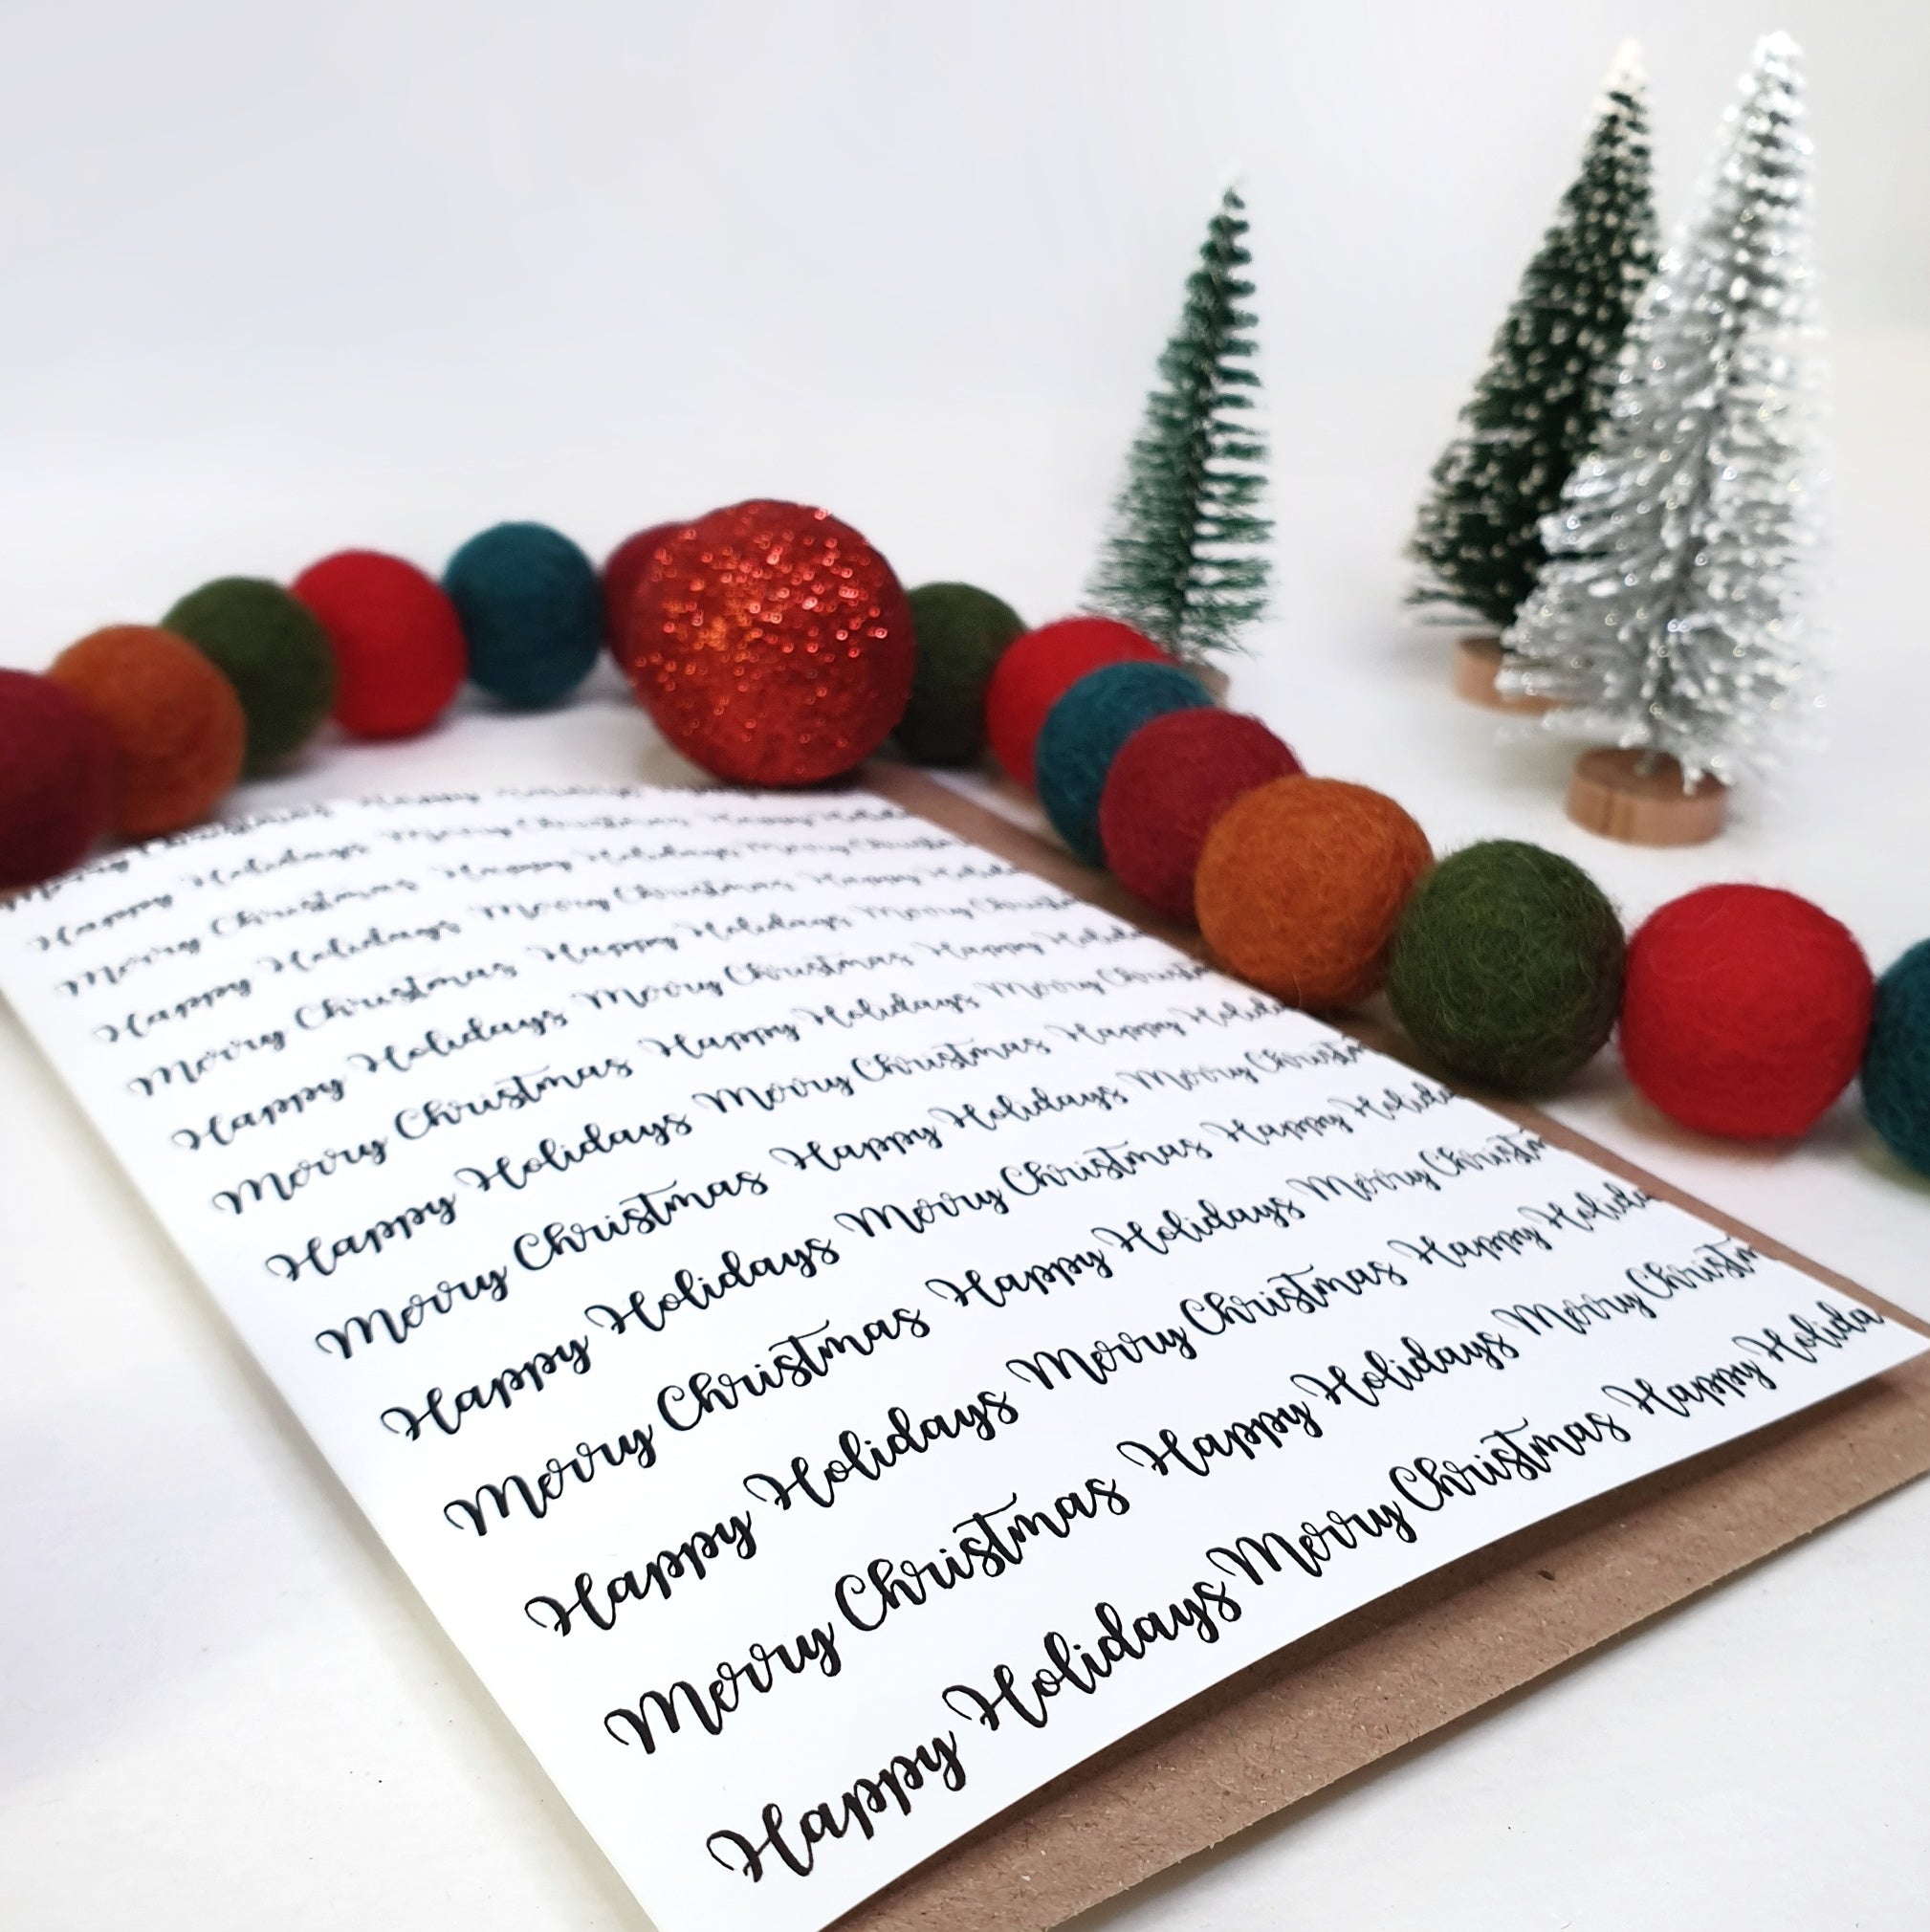 Merry Christmas Happy Holidays
Happy Holidays Merry Christmas Happy Holida
Merry Christmas Happy Holidays Merry Christm
Happy Holidays Merry Christmas Happy Holida
Merry Christmas Happy Holidays Merry Christm
Happy Holidays Merry Christmas Happy Holida
Merry Christmas Happy Holidays Merry Christm
Happy Holidays Merry Christmas Happy Holida
Merry Christmas Happy Holidays Merry Christm
Happy Holidays Merry Christmas Happy Holida
Merry Christmas Happy Holidays Merry Christm
Happy Holidays Merry Christmas Happy Holida
Merry Christmas Happy Holidays Merry Christm
Happy Holidays Merry Christmas Happy Holida